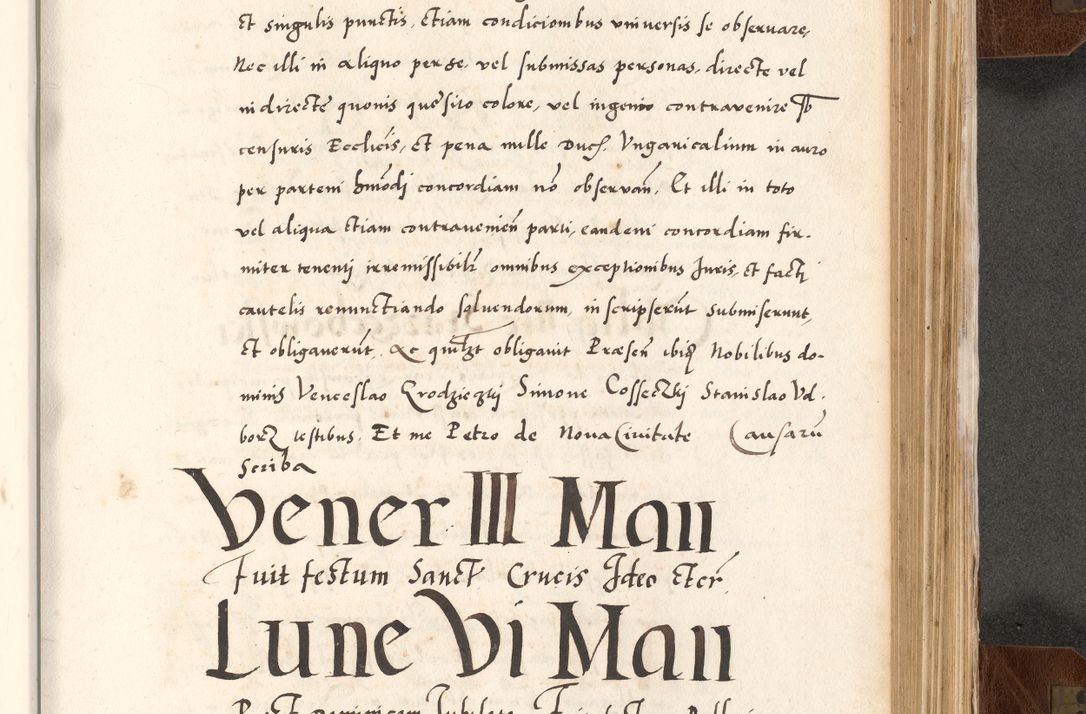 et singulis punctis, etiam condicionibus universis se observare,
Nec illi in aliquo per se, vel submissas personas, directe vel
indirecte quovis quesito colore, vel ingenio contravenire sb
censuris Ecclicis, et pena mille Duc. Ungaricalium in auro
per partem hmodi concordiam no observan. Et illi in toto
vel aliqua etiam contravenien parti, eandem concordiam fir-
miter tenenti irremissibilr omnibus exceptionibus Juris, et facti
cautelis renunctiando solvendorum, inscripserut submiserunt,
et obligaverut. Ac quilzt obligavit Præsen ibiq Nobilibus do-
minis Venceslao Grodzieczki Simone Cosseczki Stanislao Vd-
borz testibus. Et me Petro de Nova Civitate Causaru
Scriba
Vener III Maii
Fuit festum Sanct Crucis Ideo etcr
Lune Vi Maii